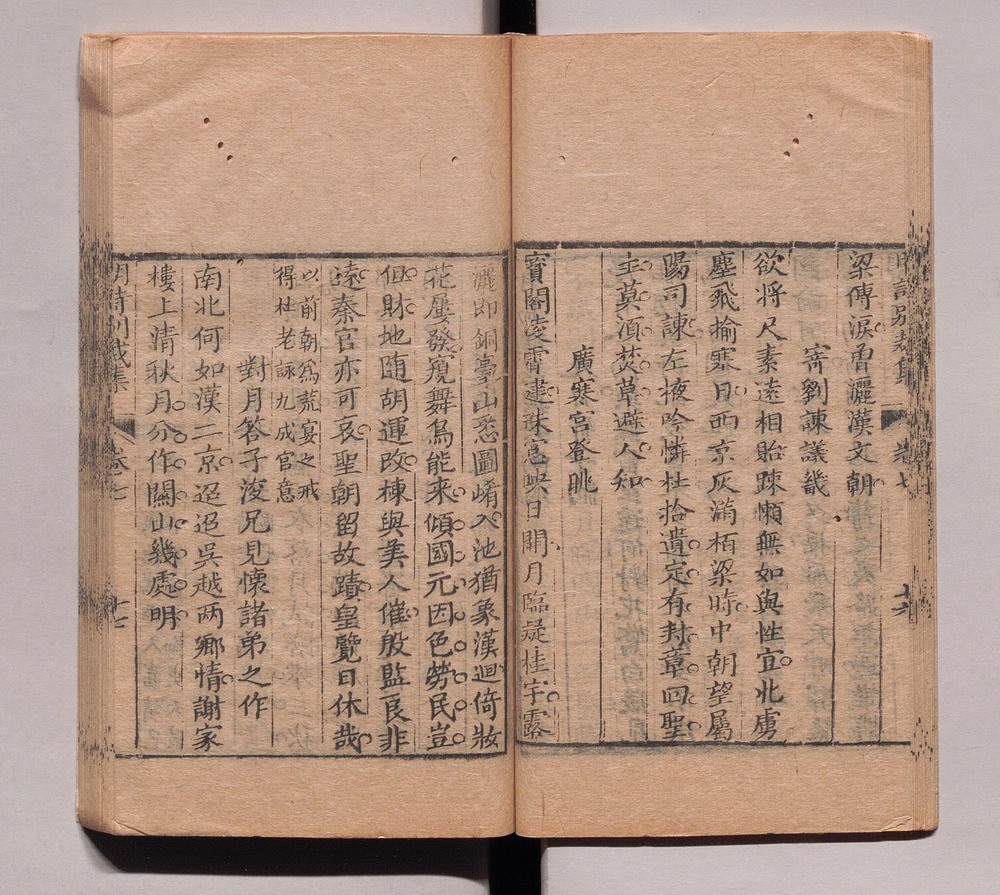 明詩別裁集 卷七 十六
梁傳淚魯灑漢文朝
寄劉諫議畿
欲將尺素遠相貽踈懶無如與性宜北虜
塵飛揄寒日西京灰滿栢梁時中朝望屬
陽司諫左掖吟憐杜拾遺定有封章回聖
主莫湏焚草避人知
廣寒宮登眺
寳閣凌霄建珠窓映日開月臨疑桂宇露
灑即銅臺山悉圖嶠入池猶象漢迴倚妝
花屋發窺舞鳥能來傾國元因色勞民豈
但財地随胡運改棟與美人催殷監良非
遠秦官亦可哀聖朝留故蹟皇覽日休哉
以前朝爲荒宴之戒
得杜老詠九成宮意
對月答子浚兄見懷諸弟之作
南北何如漢二京迢迢吳越两鄉情謝家
樓上清秋月分作關山幾處明
明詩別裁集 卷七 十七